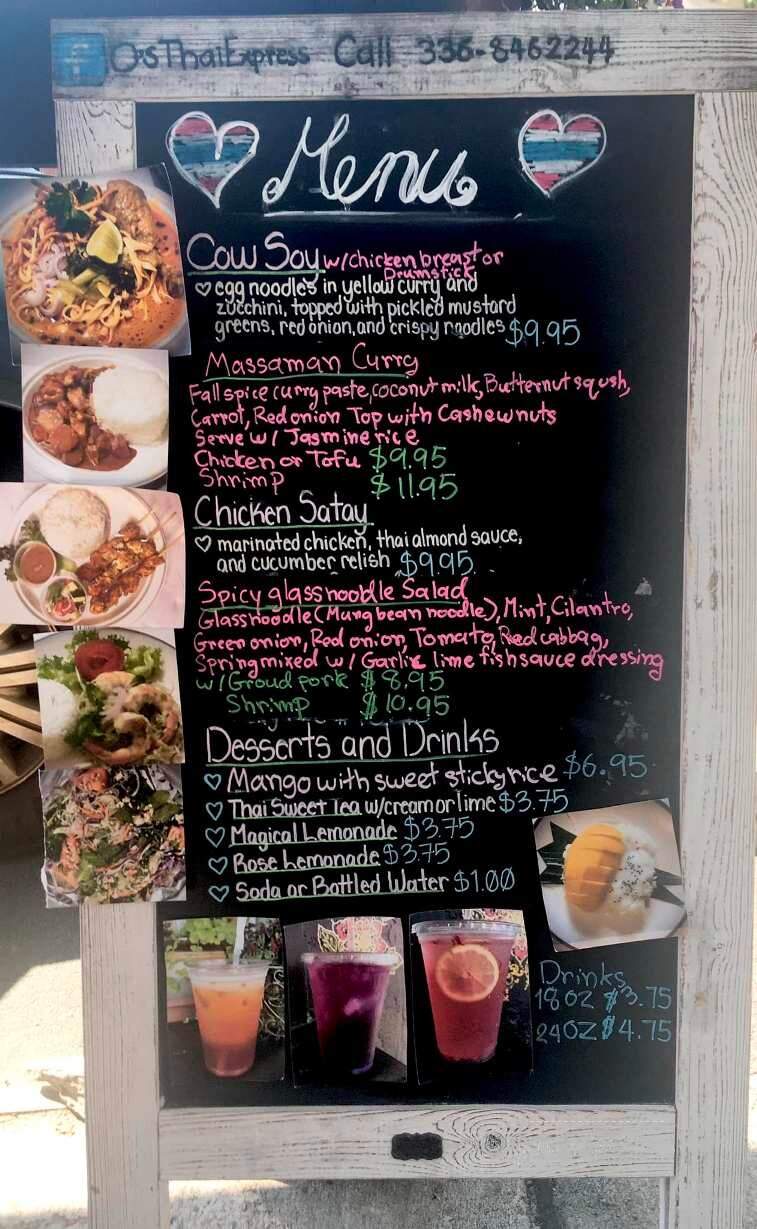 O'sThaiExpress Call 336-8462244
Menu
Cow Soy w/chicken breast or
Drumstick
egg noodles in yellow curry and
zucchini, topped with pickled mustard
greens, red onion, and crispy noodles $9.95
Massaman Curry
Fall spice curry paste, coconut milk, Butternut sqush,
Carrot, Red onion Top with Cashewnuts
Serve w/ Jasmine rice
Chicken or Tofu $9.95
Shrimp $11.95
Chicken Satay
marinated chicken, thai almond sauce,
and cucumber relish $9.95
Spicy glassnoodle Salad
Glassnoodle (Mung bean noodle), Mint, Cilantro,
Green onion, Red onion, Tomato, Red cabbag,
Spring mixed w/ Garlic lime fishsauce dressing
w/Groud pork $8.95
Shrimp $10.95
Desserts and Drinks
Mango with sweet sticky rice $6.95
Thai Sweet Tea w/cream or lime $3.75
Magical Lemonade $3.75
Rose Lemonade $3.75
Soda or Bottled Water $1.00
Drinks
18oz $3.75
24oz $4.75